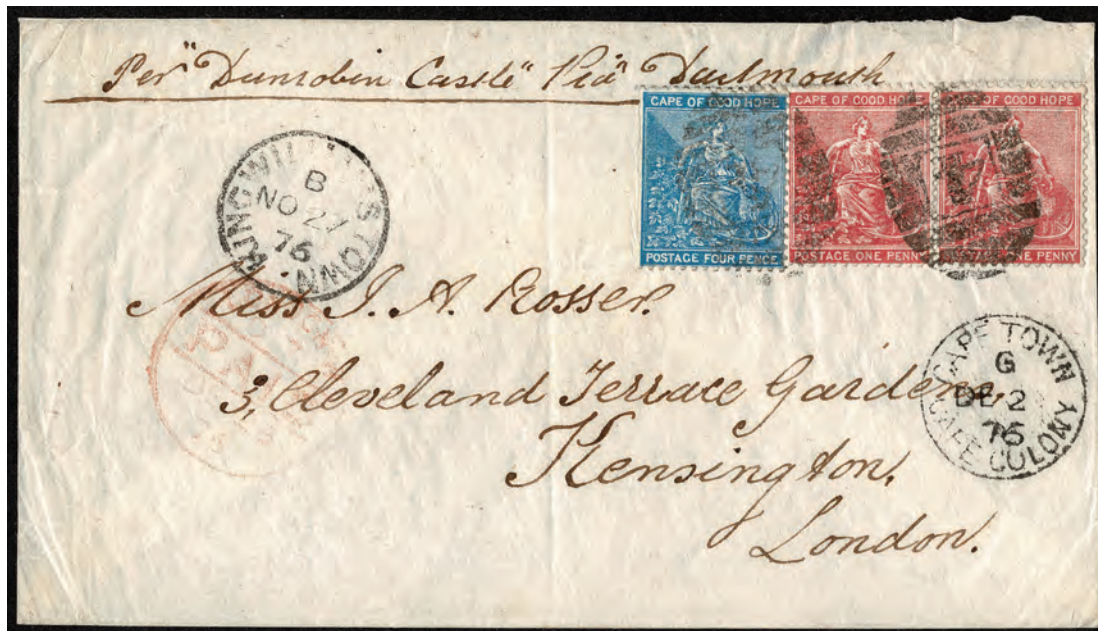 Per "Dunrobin Castle" Via Dartmouth
CAPE OF GOOD HOPE
POSTAGE FOUR PENCE
CAPE OF GOOD HOPE
POSTAGE ONE PENNY
CAPE OF GOOD HOPE
POSTAGE ONE PENNY
KING WILLIAMS TOWN
B
NO 27
76
Miss J. A. Rosser.
3, Cleveland Terrace Gardens,
Kensington,
London.
PAID
CAPE TOWN
G
DE 2
76
CAPE COLONY